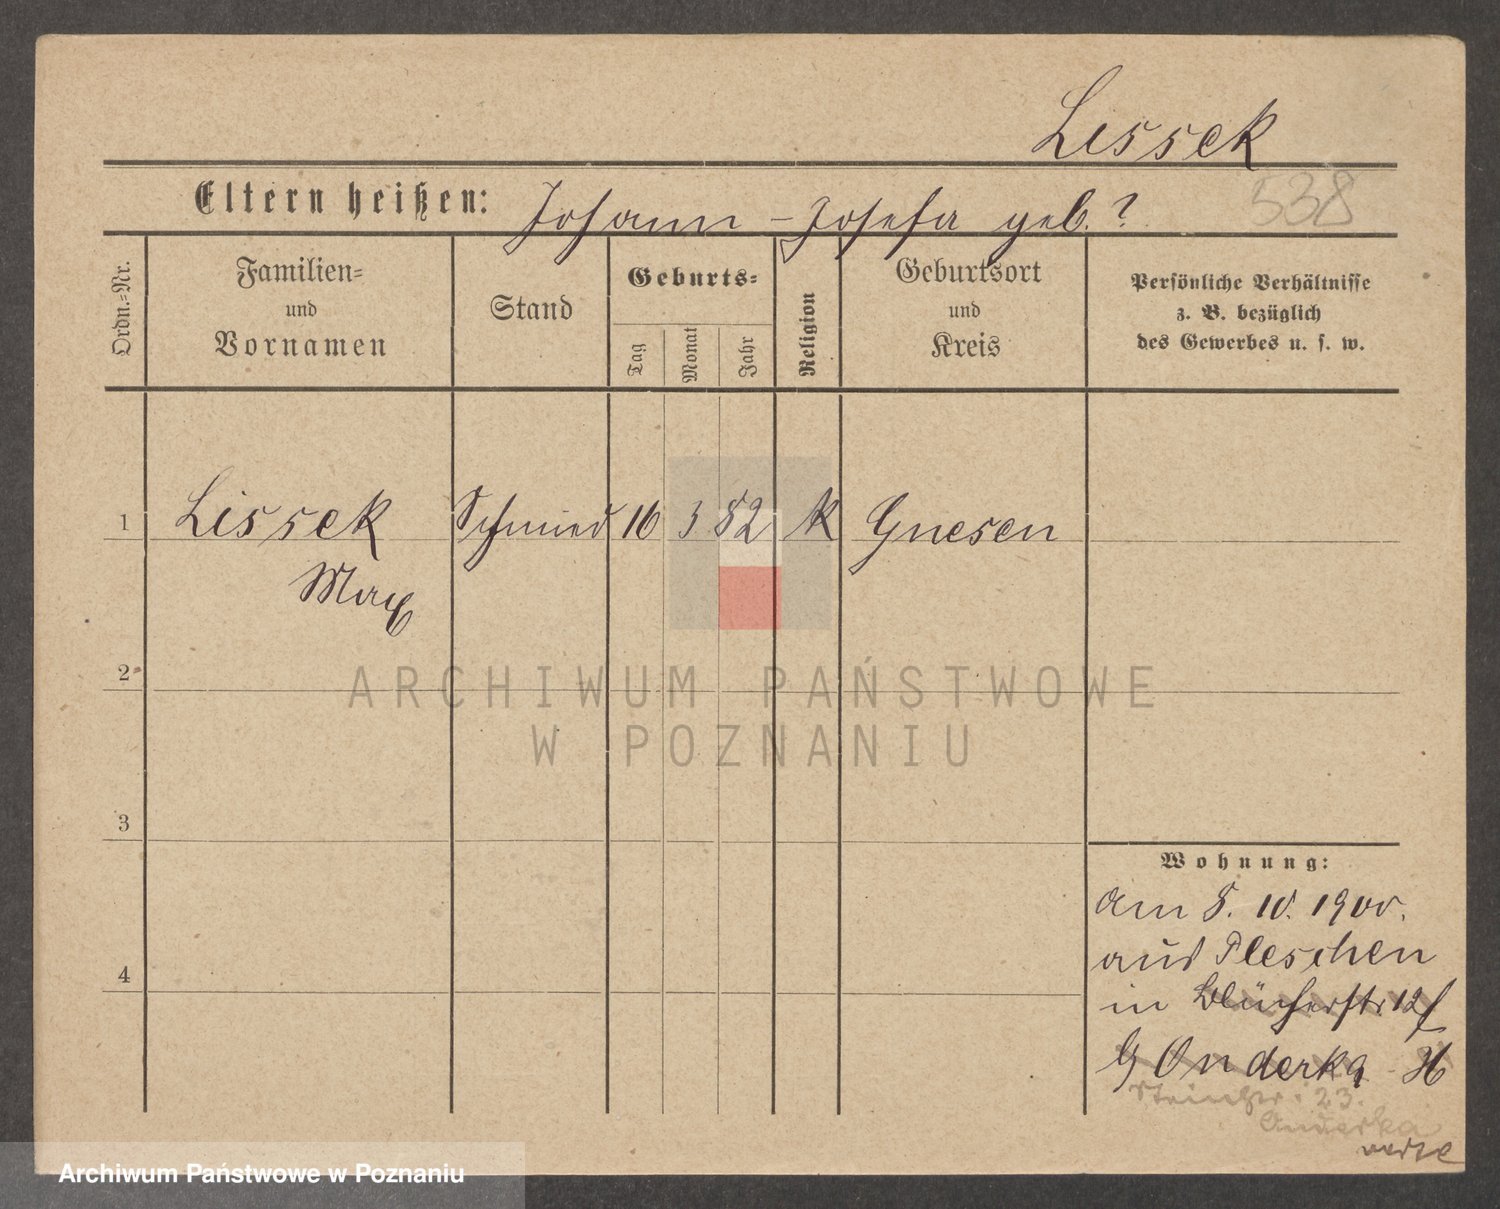 Lissek
Eltern heißen: Johann - Josefa geb. ?
538
Ordn.-Nr.
Familien- und Vornamen
Stand
Geburts-
Tag
Monat
Jahr
Religion
Geburtsort und Kreis
Persönliche Verhältnisse
z. B. bezüglich
des Gewerbes u. s. w.
1 Lissek Schmied 16 3 82 k Gnesen
Max
2
ARCHIWUM PAŃSTWOWE
W POZNANIU
3
Wohnung:
am 8. 10. 1900.
aus Pleschen
4
in Blücherstr. 12
Onderka H
23.
Onderka
verte
Archiwum Państwowe w Poznaniu